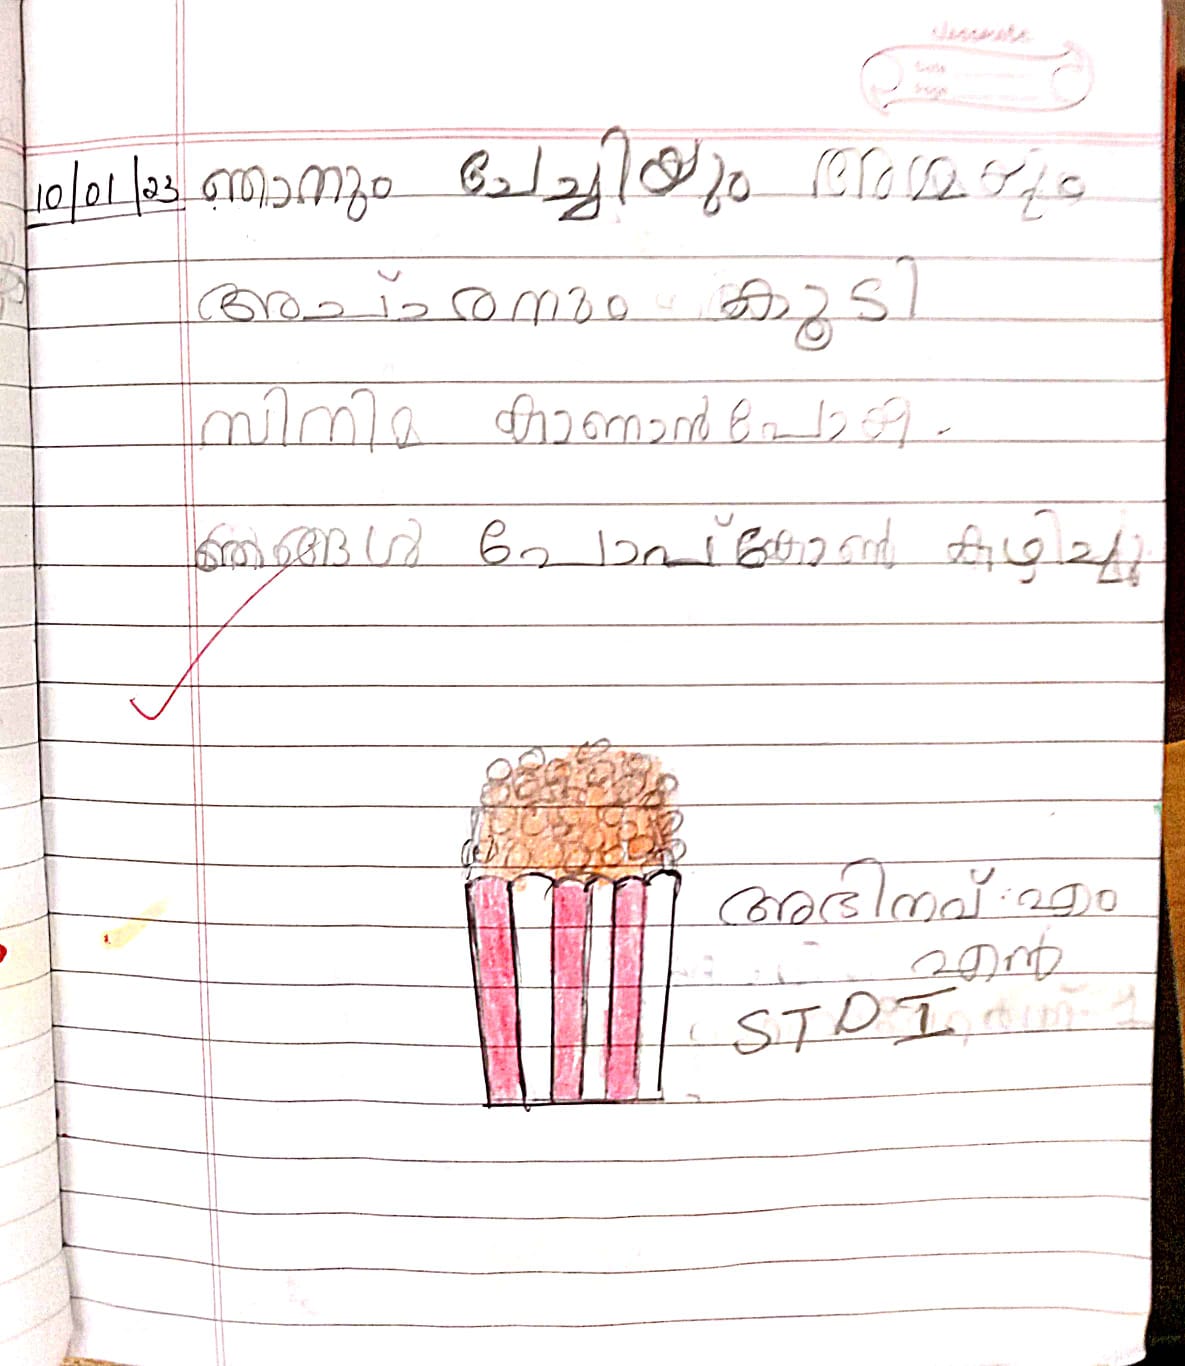 classmate
Date
Page
10/01/23 ഞാനും ചേച്ചിയും അമ്മയും
അച്ഛനും കൂടി
സിനിമ കാണാൻ പോയി.
ഞങ്ങൾ പോപ്കോൺ കഴിച്ചു
അഭിനവ്
STD I